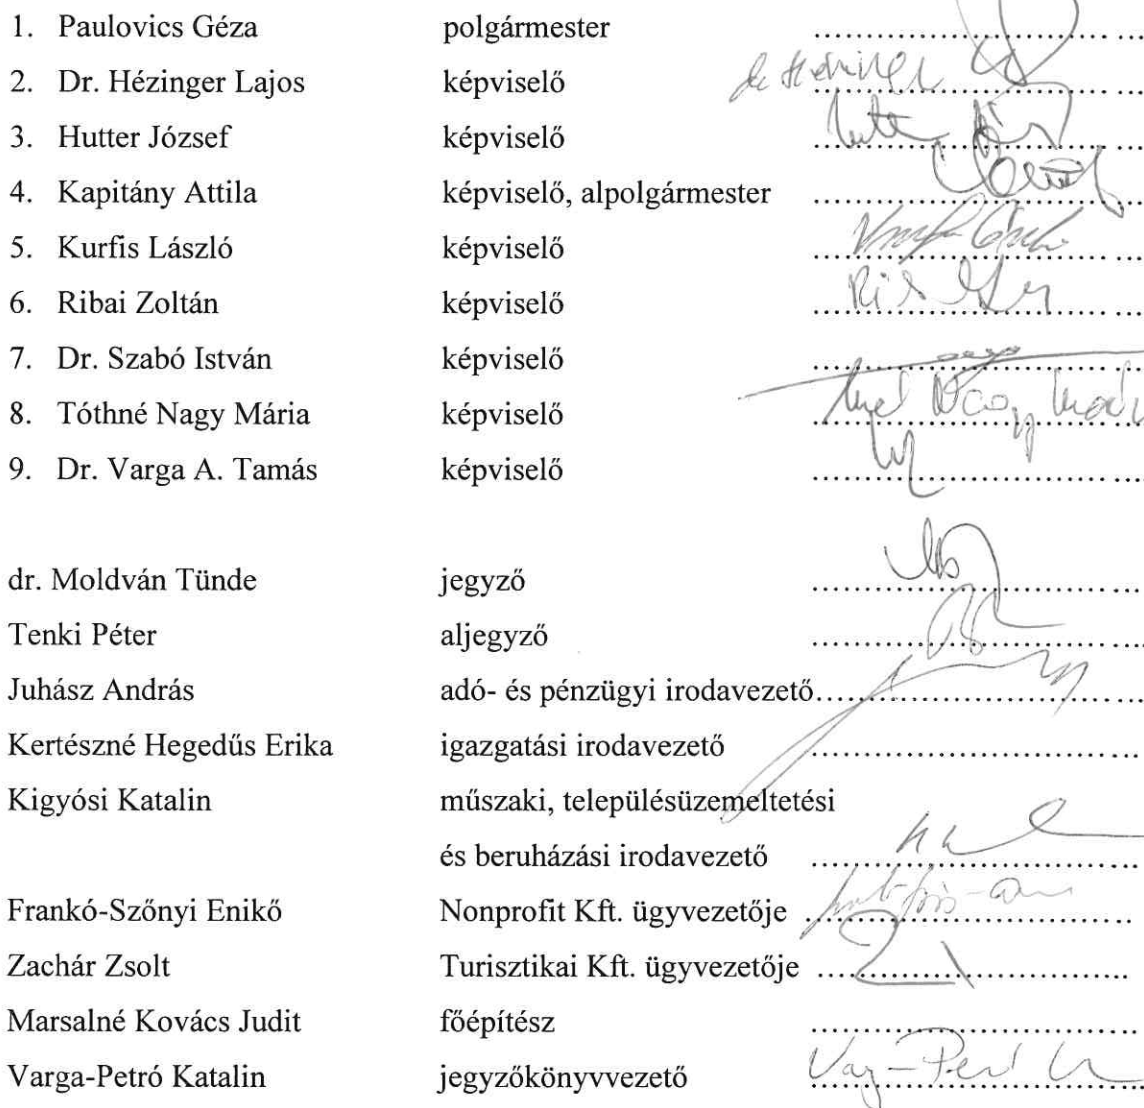 1. Paulovics Géza polgármester
2. Dr. Hézinger Lajos képviselő
3. Hutter József képviselő
4. Kapitány Attila képviselő, alpolgármester
5. Kurfis László képviselő
6. Ribai Zoltán képviselő
7. Dr. Szabó István képviselő
8. Tóthné Nagy Mária képviselő
9. Dr. Varga A. Tamás képviselő
dr. Moldván Tünde jegyző
Tenki Péter aljegyző
Juhász András adó- és pénzügyi irodavezető
Kertészné Hegedűs Erika igazgatási irodavezető
Kigyósi Katalin műszaki, településüzemeltetési
és beruházási irodavezető
Frankó-Szőnyi Enikő Nonprofit Kft. ügyvezetője
Zachár Zsolt Turisztikai Kft. ügyvezetője
Marsalné Kovács Judit főépítész
Varga-Petró Katalin jegyzőkönyvvezető